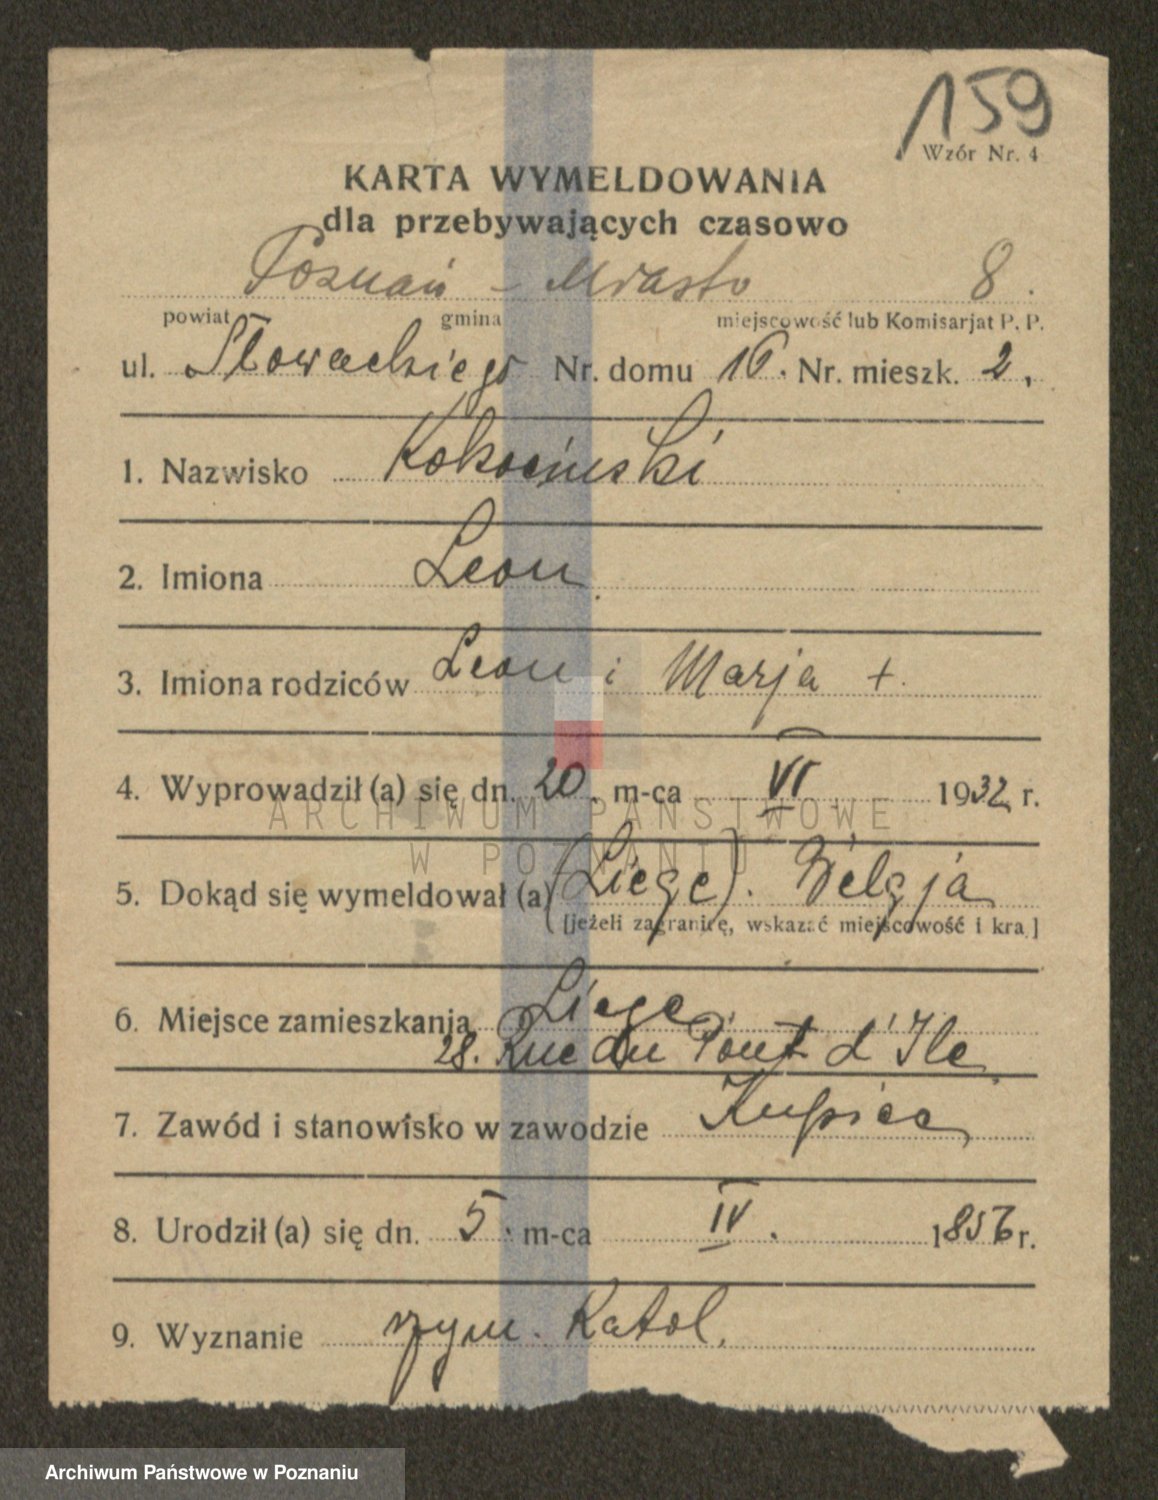 159
Wzór Nr. 4
KARTA WYMELDOWANIA
dla przebywających czasowo
Poznań - Miasto 8.
powiat gmina miejscowość lub Komisarjat P. P.
ul. Słowackiego Nr. domu 16. Nr. mieszk. 2.
1. Nazwisko Kokocinski
2. Imiona Leon
3. Imiona rodziców Leon i Marja +.
4. Wyprowadził (a) się dn. 20. m-ca VI 1932 r.
ARCHIWUM PAŃSTWOWE
W POZNANIU
5. Dokąd się wymeldował (a) (Liege). Belgja
[jeżeli zagranicę, wskazać miejscowość i kraj]
6. Miejsce zamieszkania Liege
28. Rue du Pont d'Ile
7. Zawód i stanowisko w zawodzie Kupiec
8. Urodził (a) się dn. 5. m-ca IV. 1856 r.
9. Wyznanie rzym. Katol.
Archiwum Państwowe w Poznaniu